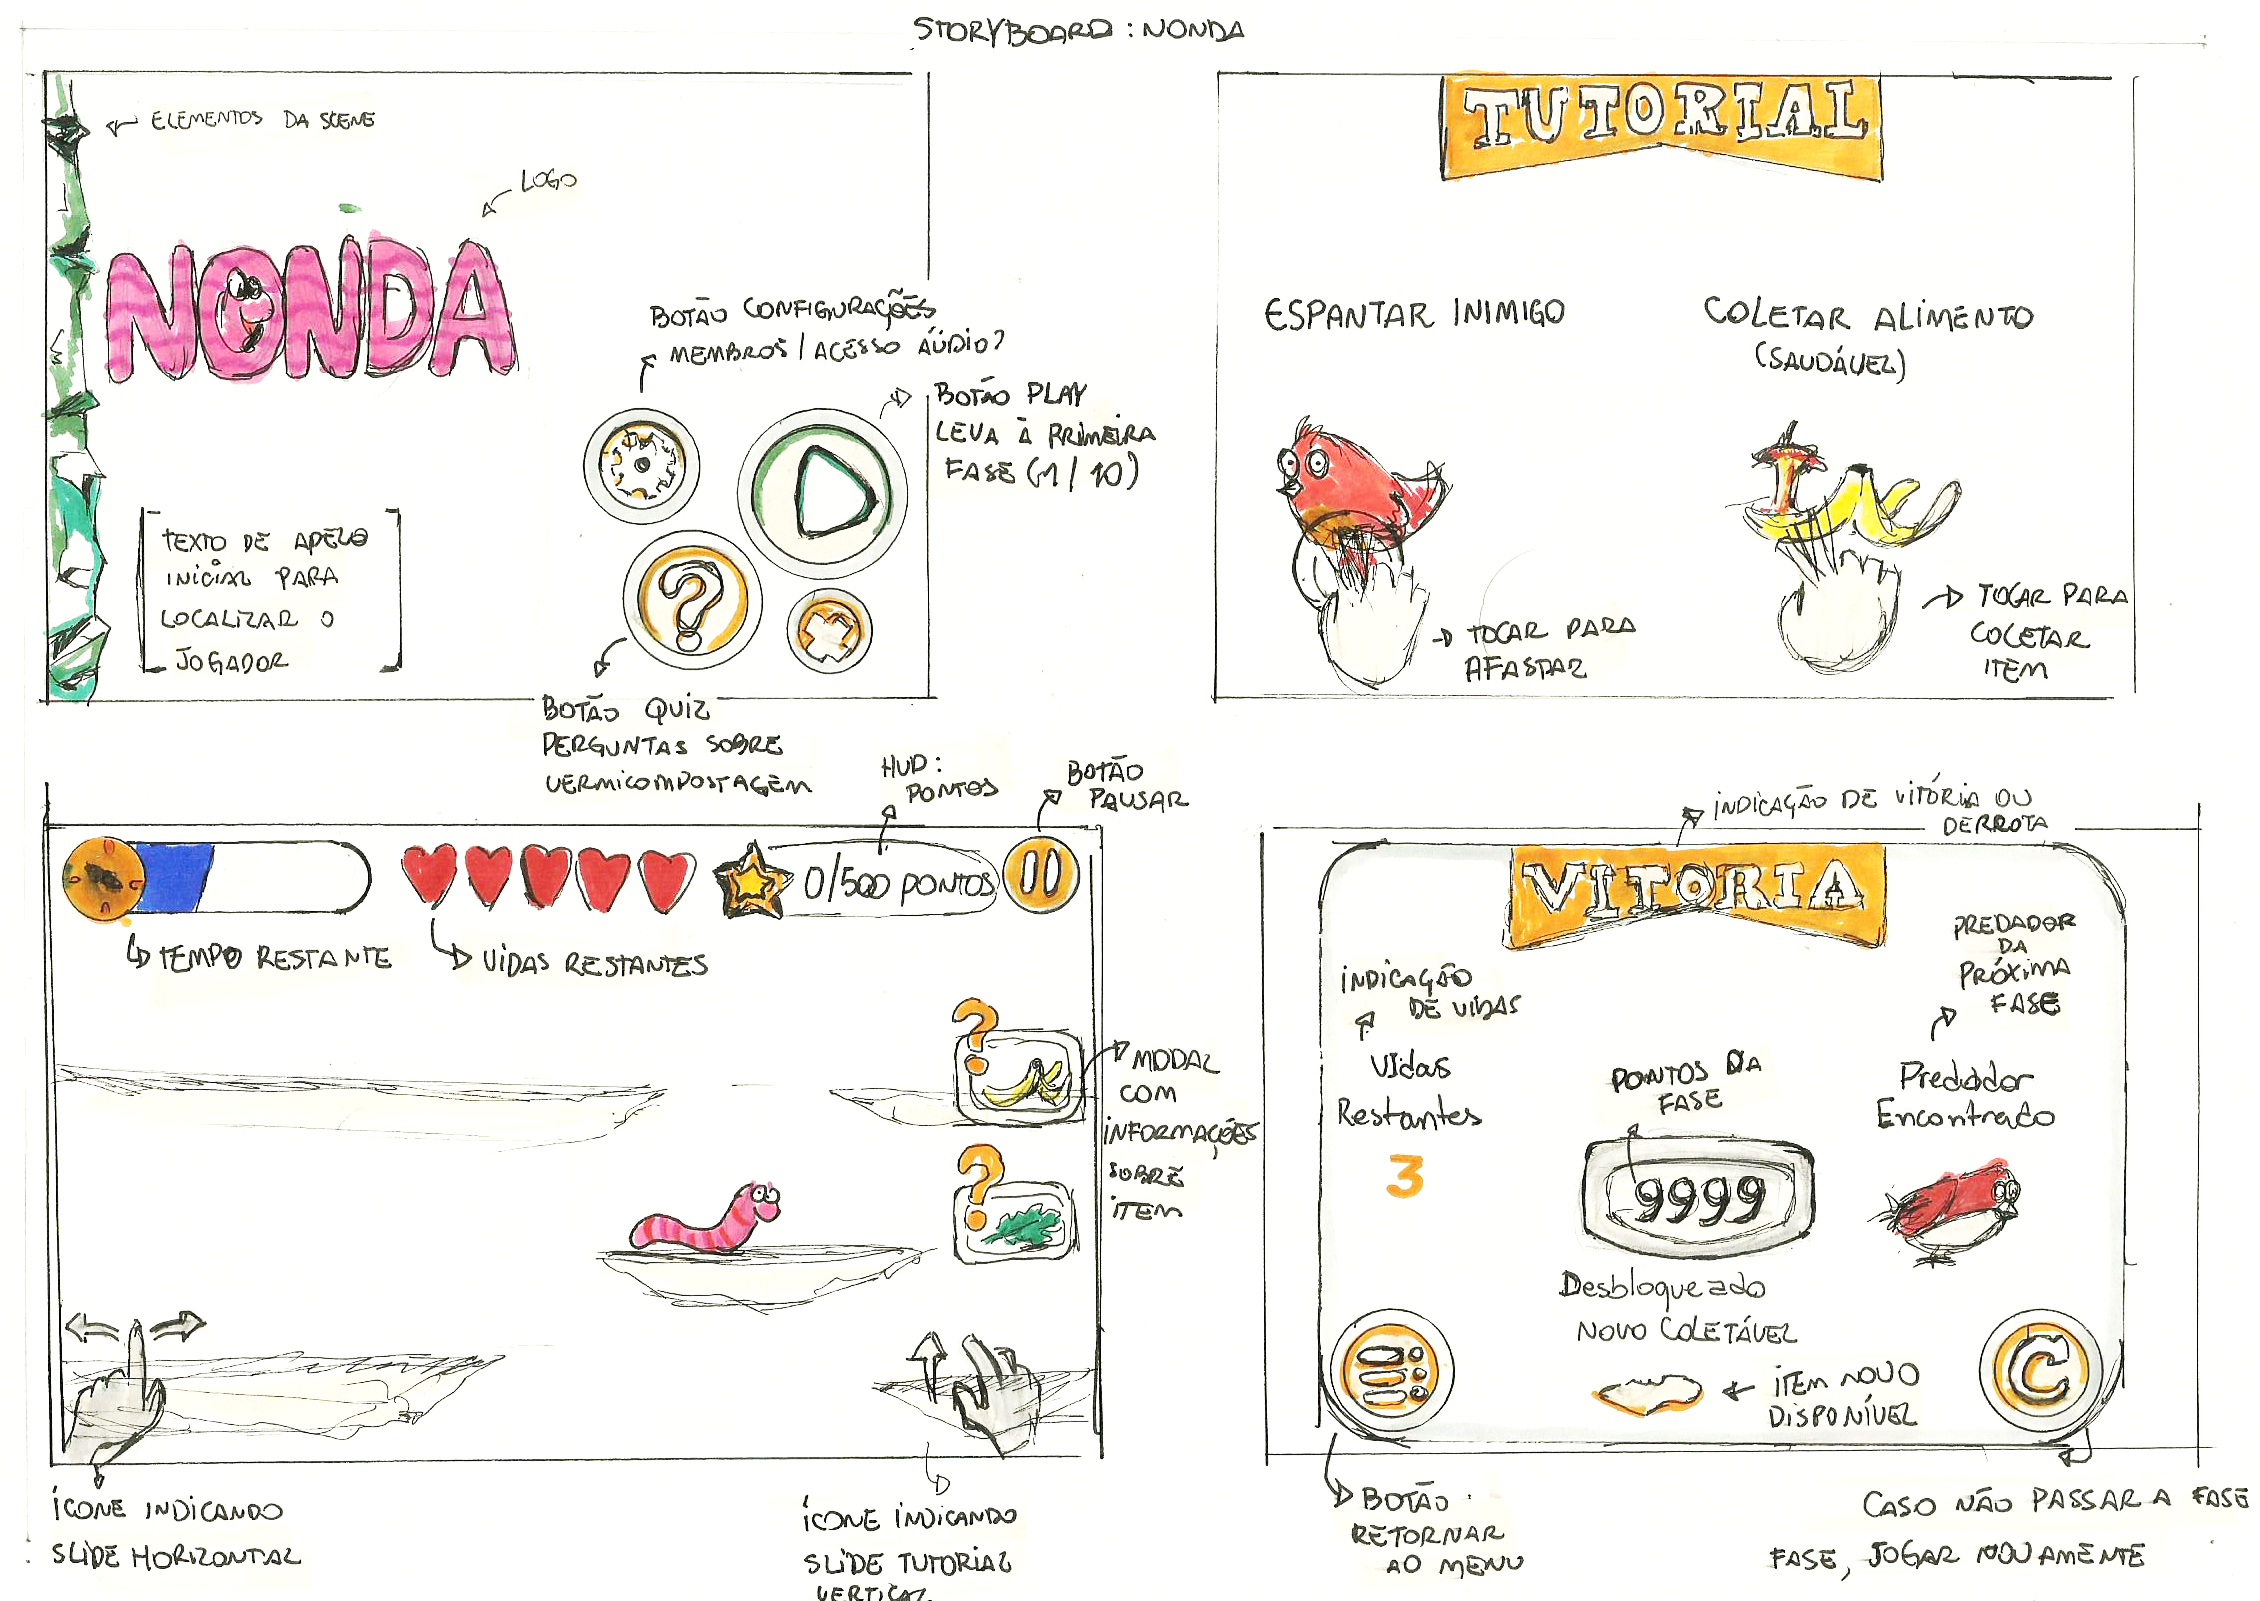 STORYBOARD : NONDA
ELEMENTOS DA SCENE
LOGO
NONDA
BOTÃO CONFIGURAÇÕES
MEMBROS / ACESSO ÁUDIO?
BOTÃO PLAY
LEVA À PRIMEIRA
FASE (1/10)
TEXTO DE APELO
INICIAL PARA
LOCALIZAR O
JOGADOR
?
BOTÃO QUIZ
PERGUNTAS SOBRE
VERMICOMPOSTAGEM
TUTORIAL
ESPANTAR INIMIGO
COLETAR ALIMENTO
(SAUDÁVEL)
TOCAR PARA
AFASTAR
TOCAR PARA
COLETAR
ITEM
HUD:
PONTOS
BOTÃO
PAUSAR
0/500 PONTOS
TEMPO RESTANTE
VIDAS RESTANTES
?
?
MODAL
COM
INFORMAÇÕES
SOBRE
ITEM
ÍCONE INDICANDO
SLIDE HORIZONTAL
ÍCONE INDICANDO
SLIDE TUTORIAL
VERTICAL
INDICAÇÃO DE VITÓRIA OU
DERROTA
VITORIA
INDICAÇÃO
DE VIDAS
Vidas
Restantes
3
PONTOS DA
FASE
9999
PREDADOR
DA
PRÓXIMA
FASE
Predador
Encontrado
Desbloqueado
NOVO COLETÁVEL
ITEM NOVO
DISPONÍVEL
C
BOTÃO
RETORNAR
AO MENU
CASO NÃO PASSAR A FASE
FASE, JOGAR NOVAMENTE